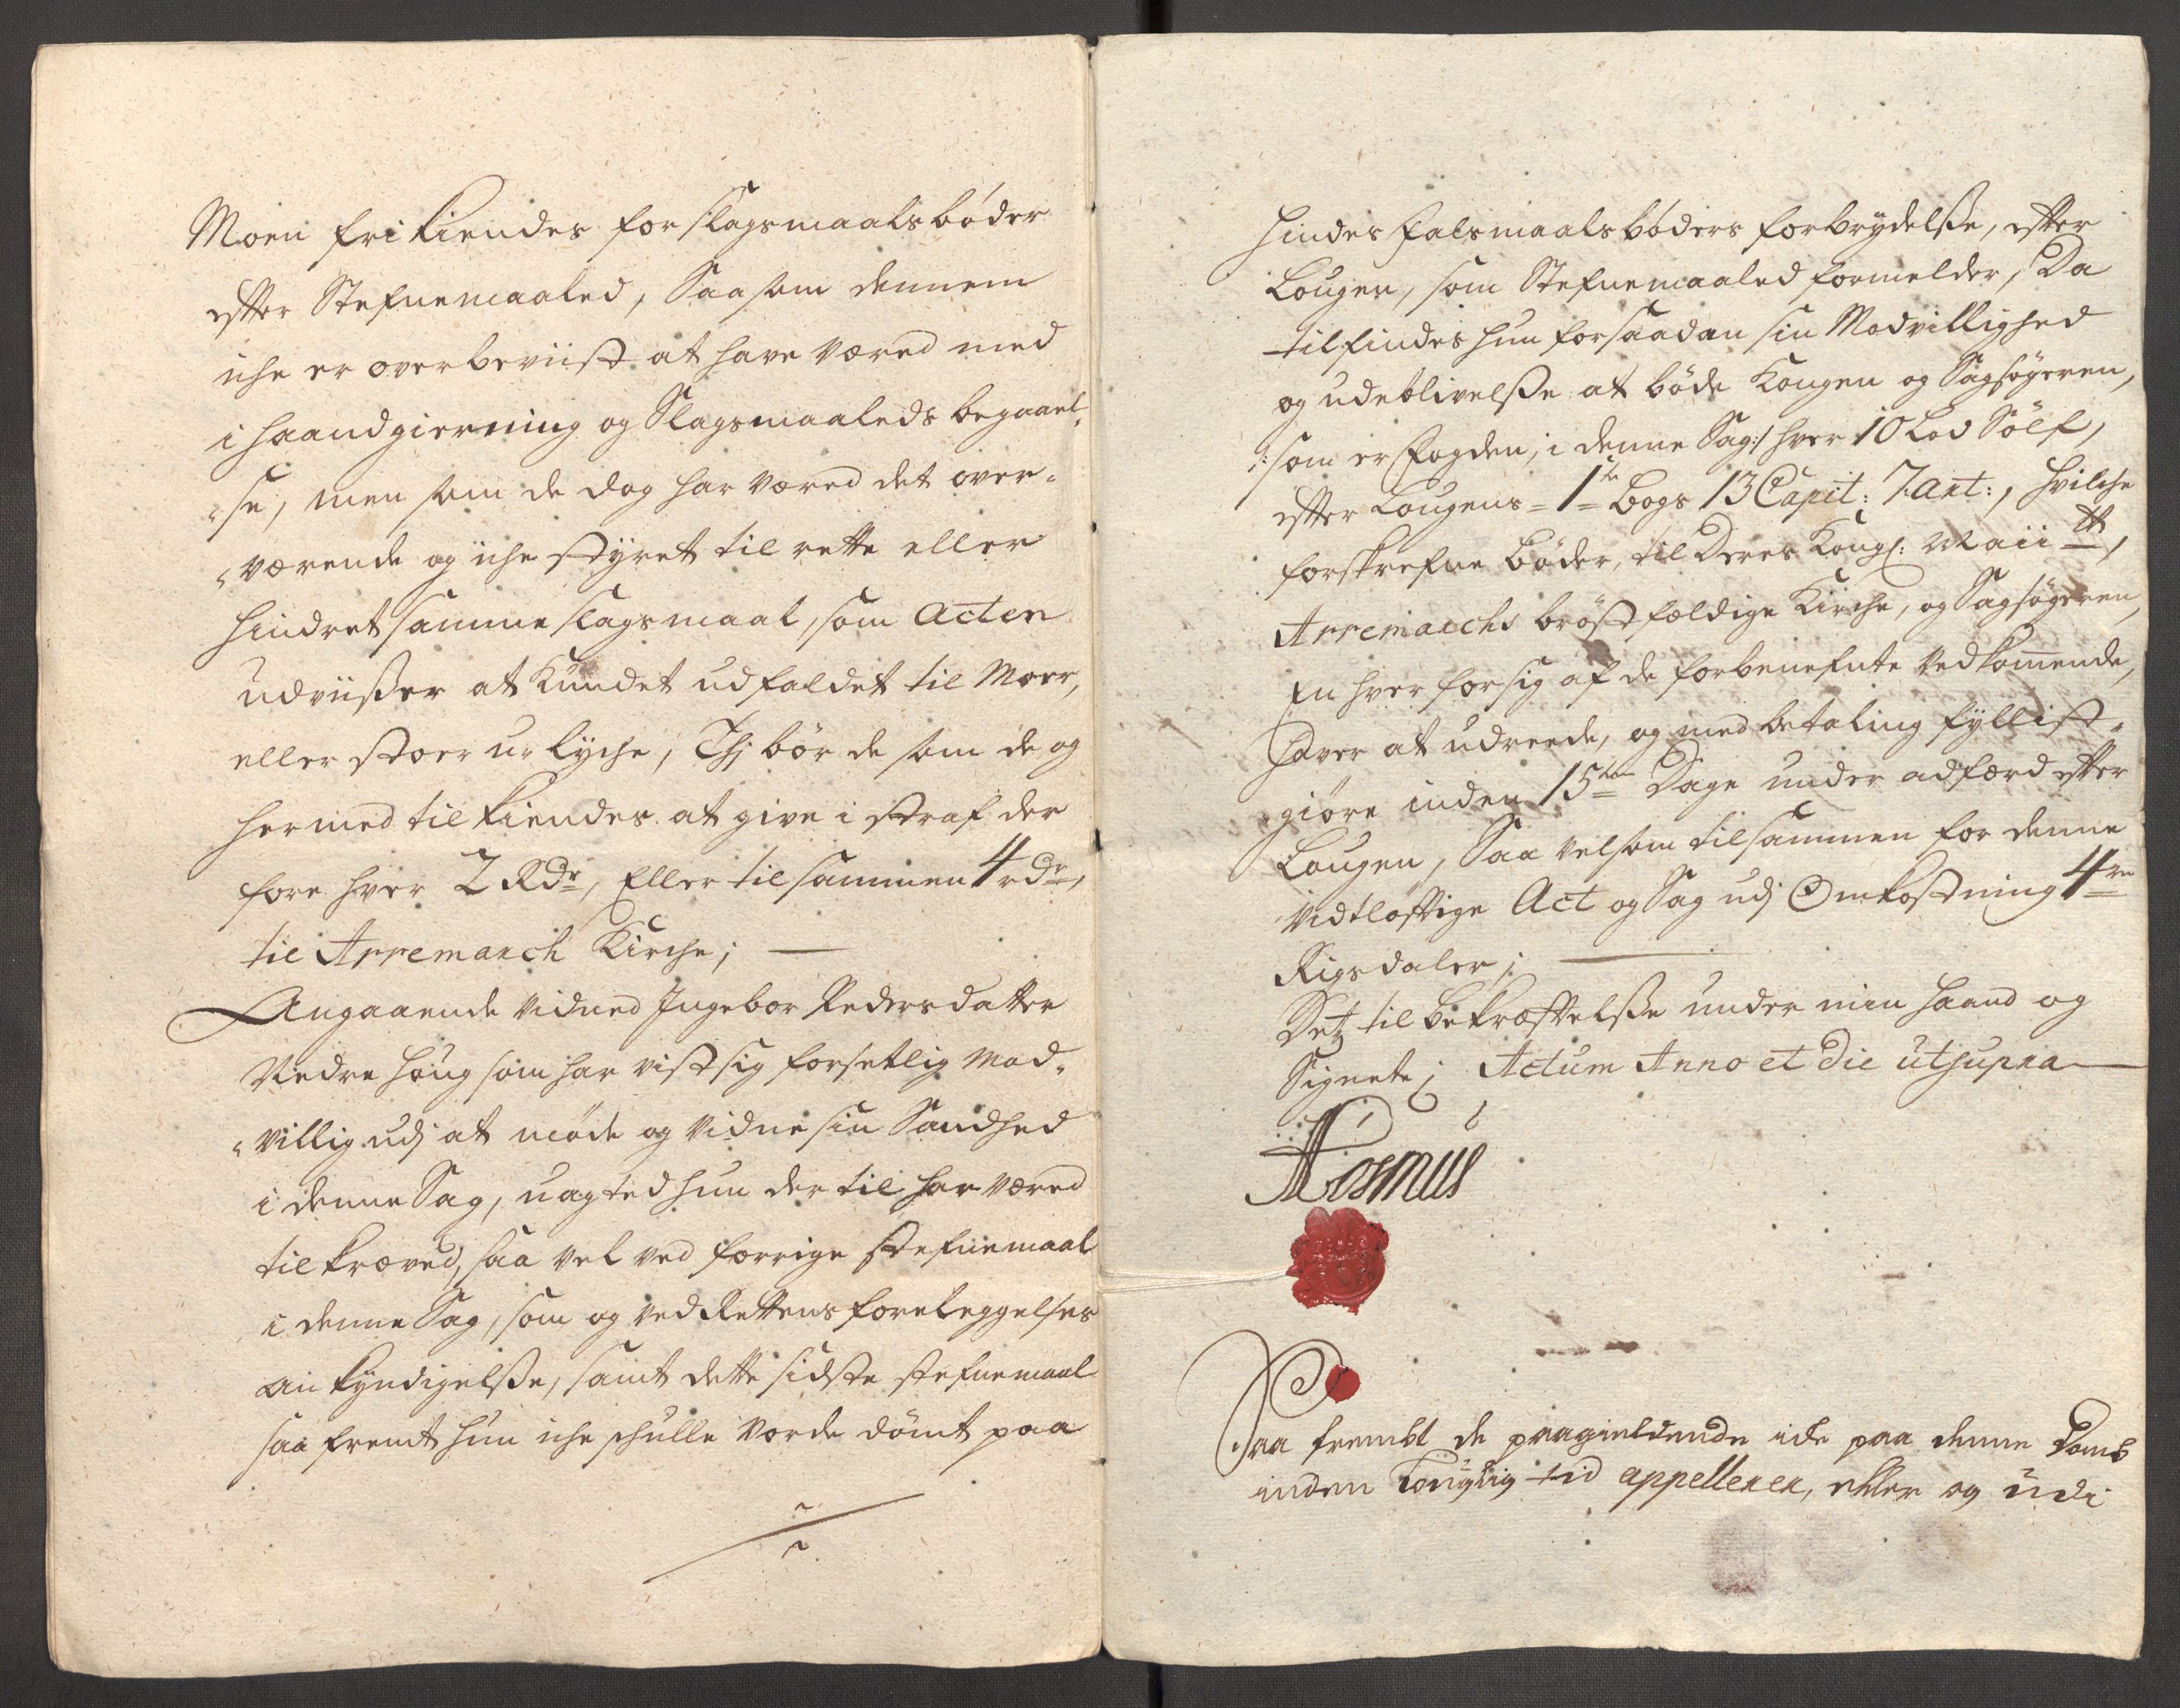 Moen frikiendes for slagsmaalsbøder
efter Stefnemaaled, Saasom dennem
iche er overbeviist at have været med
i haandgierning og Slagsmaaleds begaael-
se, men som de dog har væred det over-
værende og iche styret til rette eller
hindret samme slagsmaal, som Acten
udviißer at kundet udfaldet til Moer,
eller stoer u-lyche, Thj bør de som de og
hermed tilkiendes at give i straf der
fore hver 2 Rdr, Eller tilsammen 4 rdr,
til Arremarch Kirche; —
Angaaende vidned Ingebor Pedersdatter
Nedre Houg som har vist sig forsetlig Mod-
villig udj at møde og vidne sin Sandhed
i denne Sag, uagted hun der til har væred
tilkræved, saa vel ved forrige stefnemaal
i denne Sag, som og ved Rettens foreleggelses
ankyndigelße, samt dette sidste stefnemaal
saa fremt hun iche schulle vorde dømt paa
hindes falsmaals bøders forbrydelße, efter
Lougen, som Stefnemaaled formelder, Da
tilfindes hun for saadan sin Modvillighed
og udeblivelße at bøde Kongen og Sagsøgeren,
/: som er Fogden, i denne Sag :/ hver 10 Lod Sølf,
efter Lougens 1te Bogs 13 Capit: 7. Art:, Hvilche
forskrefne bøder, til Deres Kongl: Maiitt,
Arremarchs brøstfældige Kirche, og Sagsøgeren,
En hver for sig af de forbenefnte vedkommende,
haver at udreede, og med betaling fyllist-
giøre inden 15ten Dage under adfærd efter
Lougen, Saa velsom tilsammen for denne
vidtløftige Act og Sag udj Omkostning 4re
Rigsdaler; —
Detz til bekræftelße under min haand og
Signete; Actum Anno et Die utsupra —
ARosmus
Saa frembt de paagieldende icke paa denne Domb
inden louglig tid appellerer, eller og udi